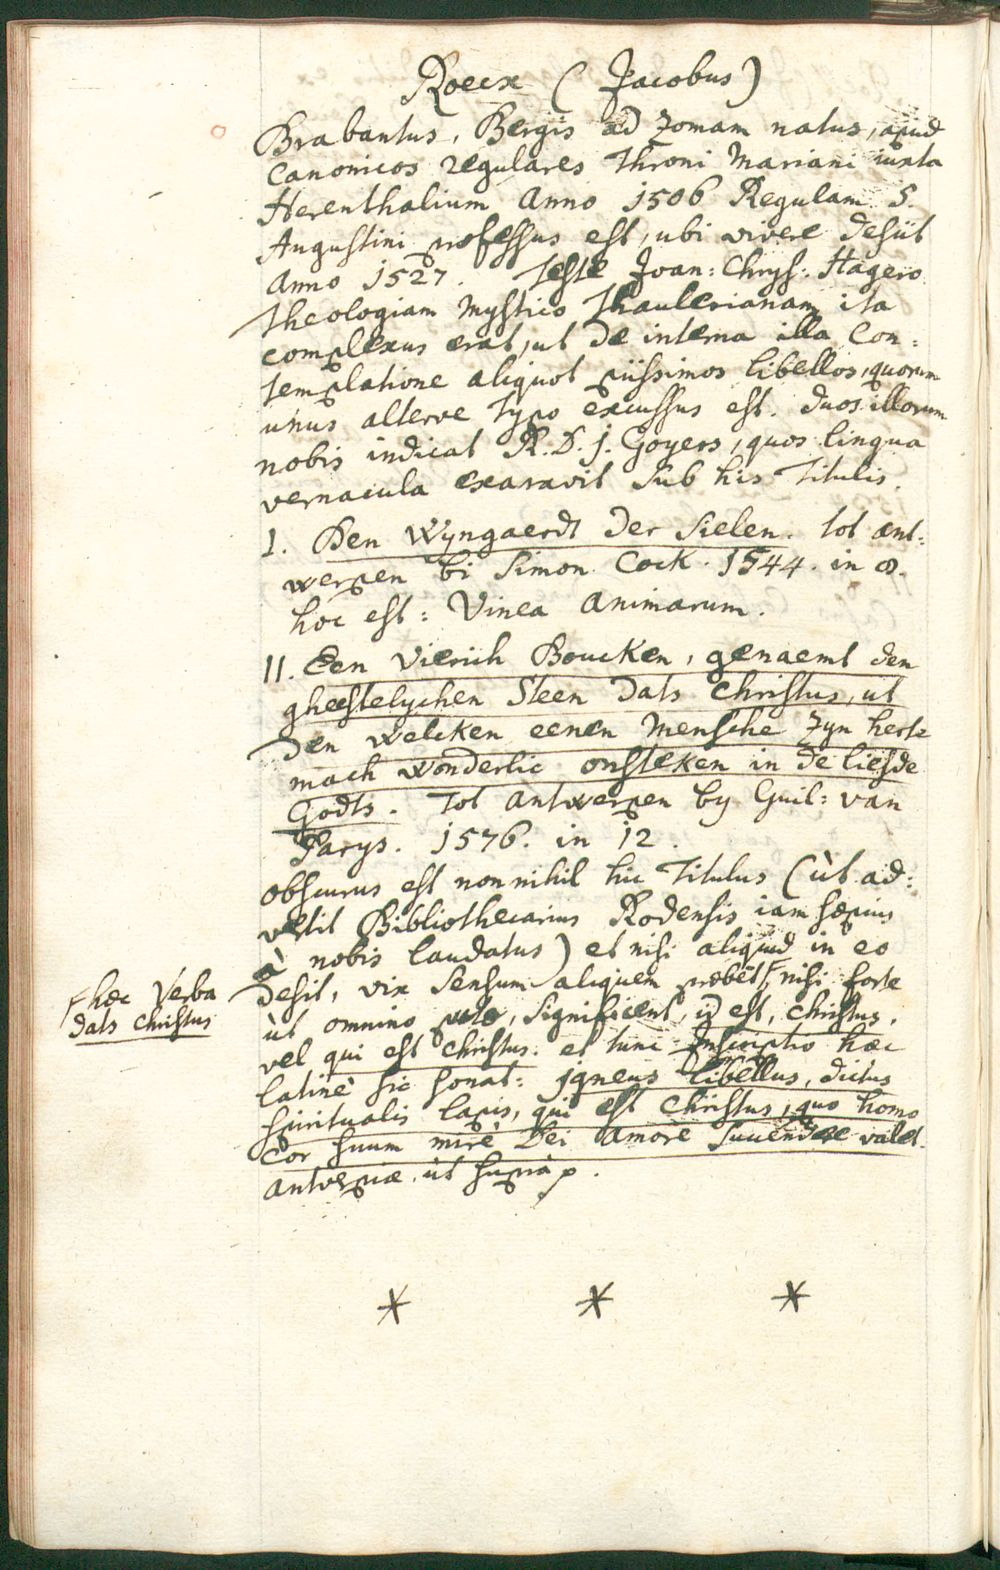 Roecx ( Jacobus )
Brabantus, Bergis ad Zomam natus, apud
Canonicos regulares Throni Mariani iuxta
Herenthalium Anno 1506 Regulam S.
Augustini professus est, ubi vivere desiit
Anno 1527. Teste Joan: Chrys: Hagero
Theologiam Mystico Thaulerianam ita
complexus erat, ut de interna illa Con:
templatione aliquot piissimos libellos, quorum
unus alterve typo excussus est. duos illorum
nobis indicat R.D. J. Goyers, quos lingua
vernacula exaravit sub his Titulis.
I. Den Wyngaerdt der Sielen. tot ant:
werpen bi Simon Cock. 1544. in 8.
hoc est: Vinea Animarum.
II. Een Vierich Boucken, genaemt den
gheestelychen Steen dats Christus, ut
den welcken eenen Mensche Zyn herte
mach wonderlic onsteken in de liefde
Godts. Tot Antwerpen by Guil: van
Parys. 1576. in 12.
obscurus est nonnihil hic Titulus (ùt ad:
vertit Bibliothecarius Rodensis iam sæpius
à nobis laudatus) et nisi aliquid in eo
desit, vix sensum aliquem præbet, nisi forte
hæc Verba
dats Christus
ùt omnino puto, significent, id est, Christus.
vel qui est Christus. et tunc Inscriptio hæc
latinè sic sonat: Igneus libellus, dictus
spiritualis lapis, qui est Christus, quo homo
cor suum mirè Dei amore succendere valet.
Antverpiæ, ùt suprà p.
* * *